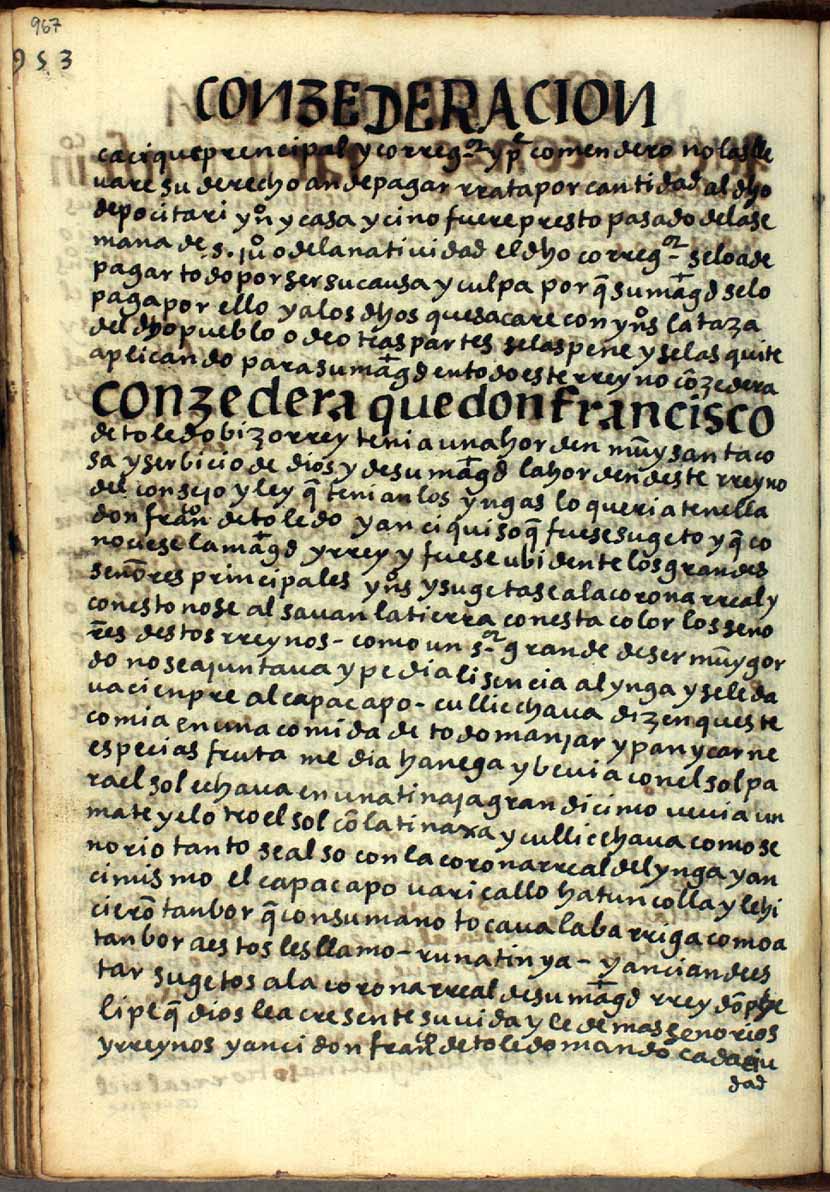 967
953
CONZEDERACION
cacique prencipal y corregor y pe comendero no las lle
uare su derecho an de pagar rrata por cantidad al dho
depocitari yno y casa y ci no fuere presto pasado de la se
mana de s. juo o de la natiuidad el dho corregor se lo a de
pagar todo por ser su causa y culpa por q̃ su magd se lo
paga por ello y a los dhos que sacare con yns la taza
del dho pueblo o de otras partes se las pene y se las quite
aplicando para su magd en todo este rreyno cõzedera
conzedera que don francisco
de toledo bizorrey tenia una horden muy santa co
sa y serbicio de dios y de su magd la horden deste rreyno
del consejo y ley q̃ tenian los yngas lo queria tenella
don frano de toledo y anci quiso q̃ fuese sugeto y q̃ co
nociese la magd y rrey y fuese ubidente los grandes
señores principales yns y sugetase a la corona rreal y
con esto no se alsauan la tierra con esta color los seno
res destos rreynos - como un sor grande de ser muy gor
do no se ajuntaua y pedia lisencia al ynga y se le da
ua cienpre al capac apo - cullic chaua dizen queste
comia en una comida de todo manjar y pan y carne
especias fruta media hanega y beuia con el sol pa
ra el sol echaua en una tinaja grandicimo veuia un
mate y el otro el sol cõ la tinaxa y cullic chaua como se
norio tanto se also con la corona rreal del ynga y an
cimismo el capac apo uari callo hatun colla y le hi
cierõ tanbor q̃ con su mano tocaua la barriga como a
tanbor a estos les llamo - runa tinya - y anci an de es
tar sugetos a la corona rreal de su magd rrey dõ phe
lipe q̃ dios le acresente su uida y le de mas senorios
y rreynos y anci don frano de toledo mando cada ciu
dad